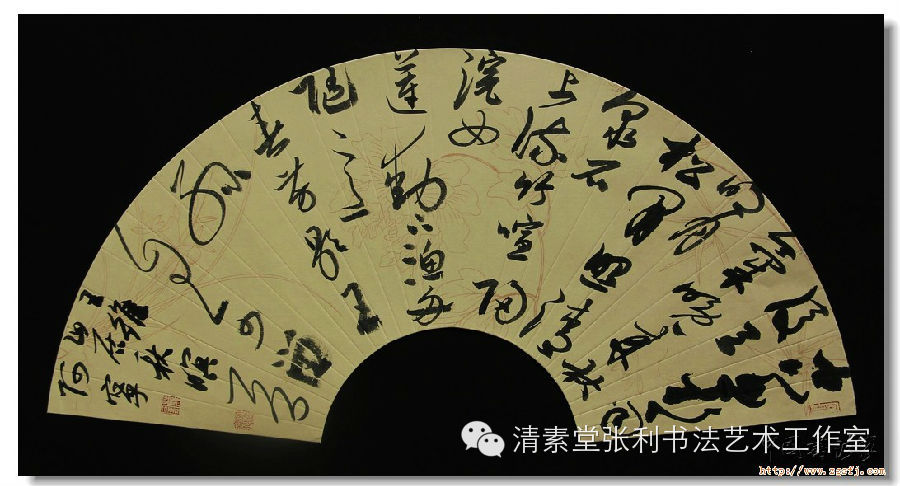 空山新雨
后天
气晚来秋
明月
松间照清
泉石
上流竹喧归
浣女
莲动下渔舟
随意
春芳歇王
孙
自可留
王维
山居秋暝
清素堂张利书法艺术工作室
http://www.zgsfj.com